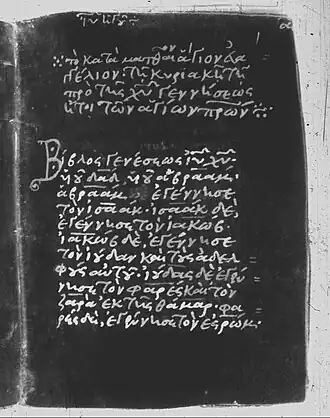 το κατα ματθαιον αγιον ευα
γελιον τη κυριακη τη
προ της χυ γεννησεως
ητοι των αγιων πρων
Βιβλος γενεσεως ιυ χυ
υυ δαδ υυ αβρααμ·
αβρααμ εγεννησε
τον ισαακ· ισαακ δε,
εγεννησε τον ιακωβ·
ιακωβ δε, εγεννησε
τον ιουδαν και τους αδελ
φους αυτου· ιουδας δε εγεν
νησε τον φαρες και τον
ζαρα εκ της θαμαρ· φα
ρες δε, εγεννησε τον εσρωμ·